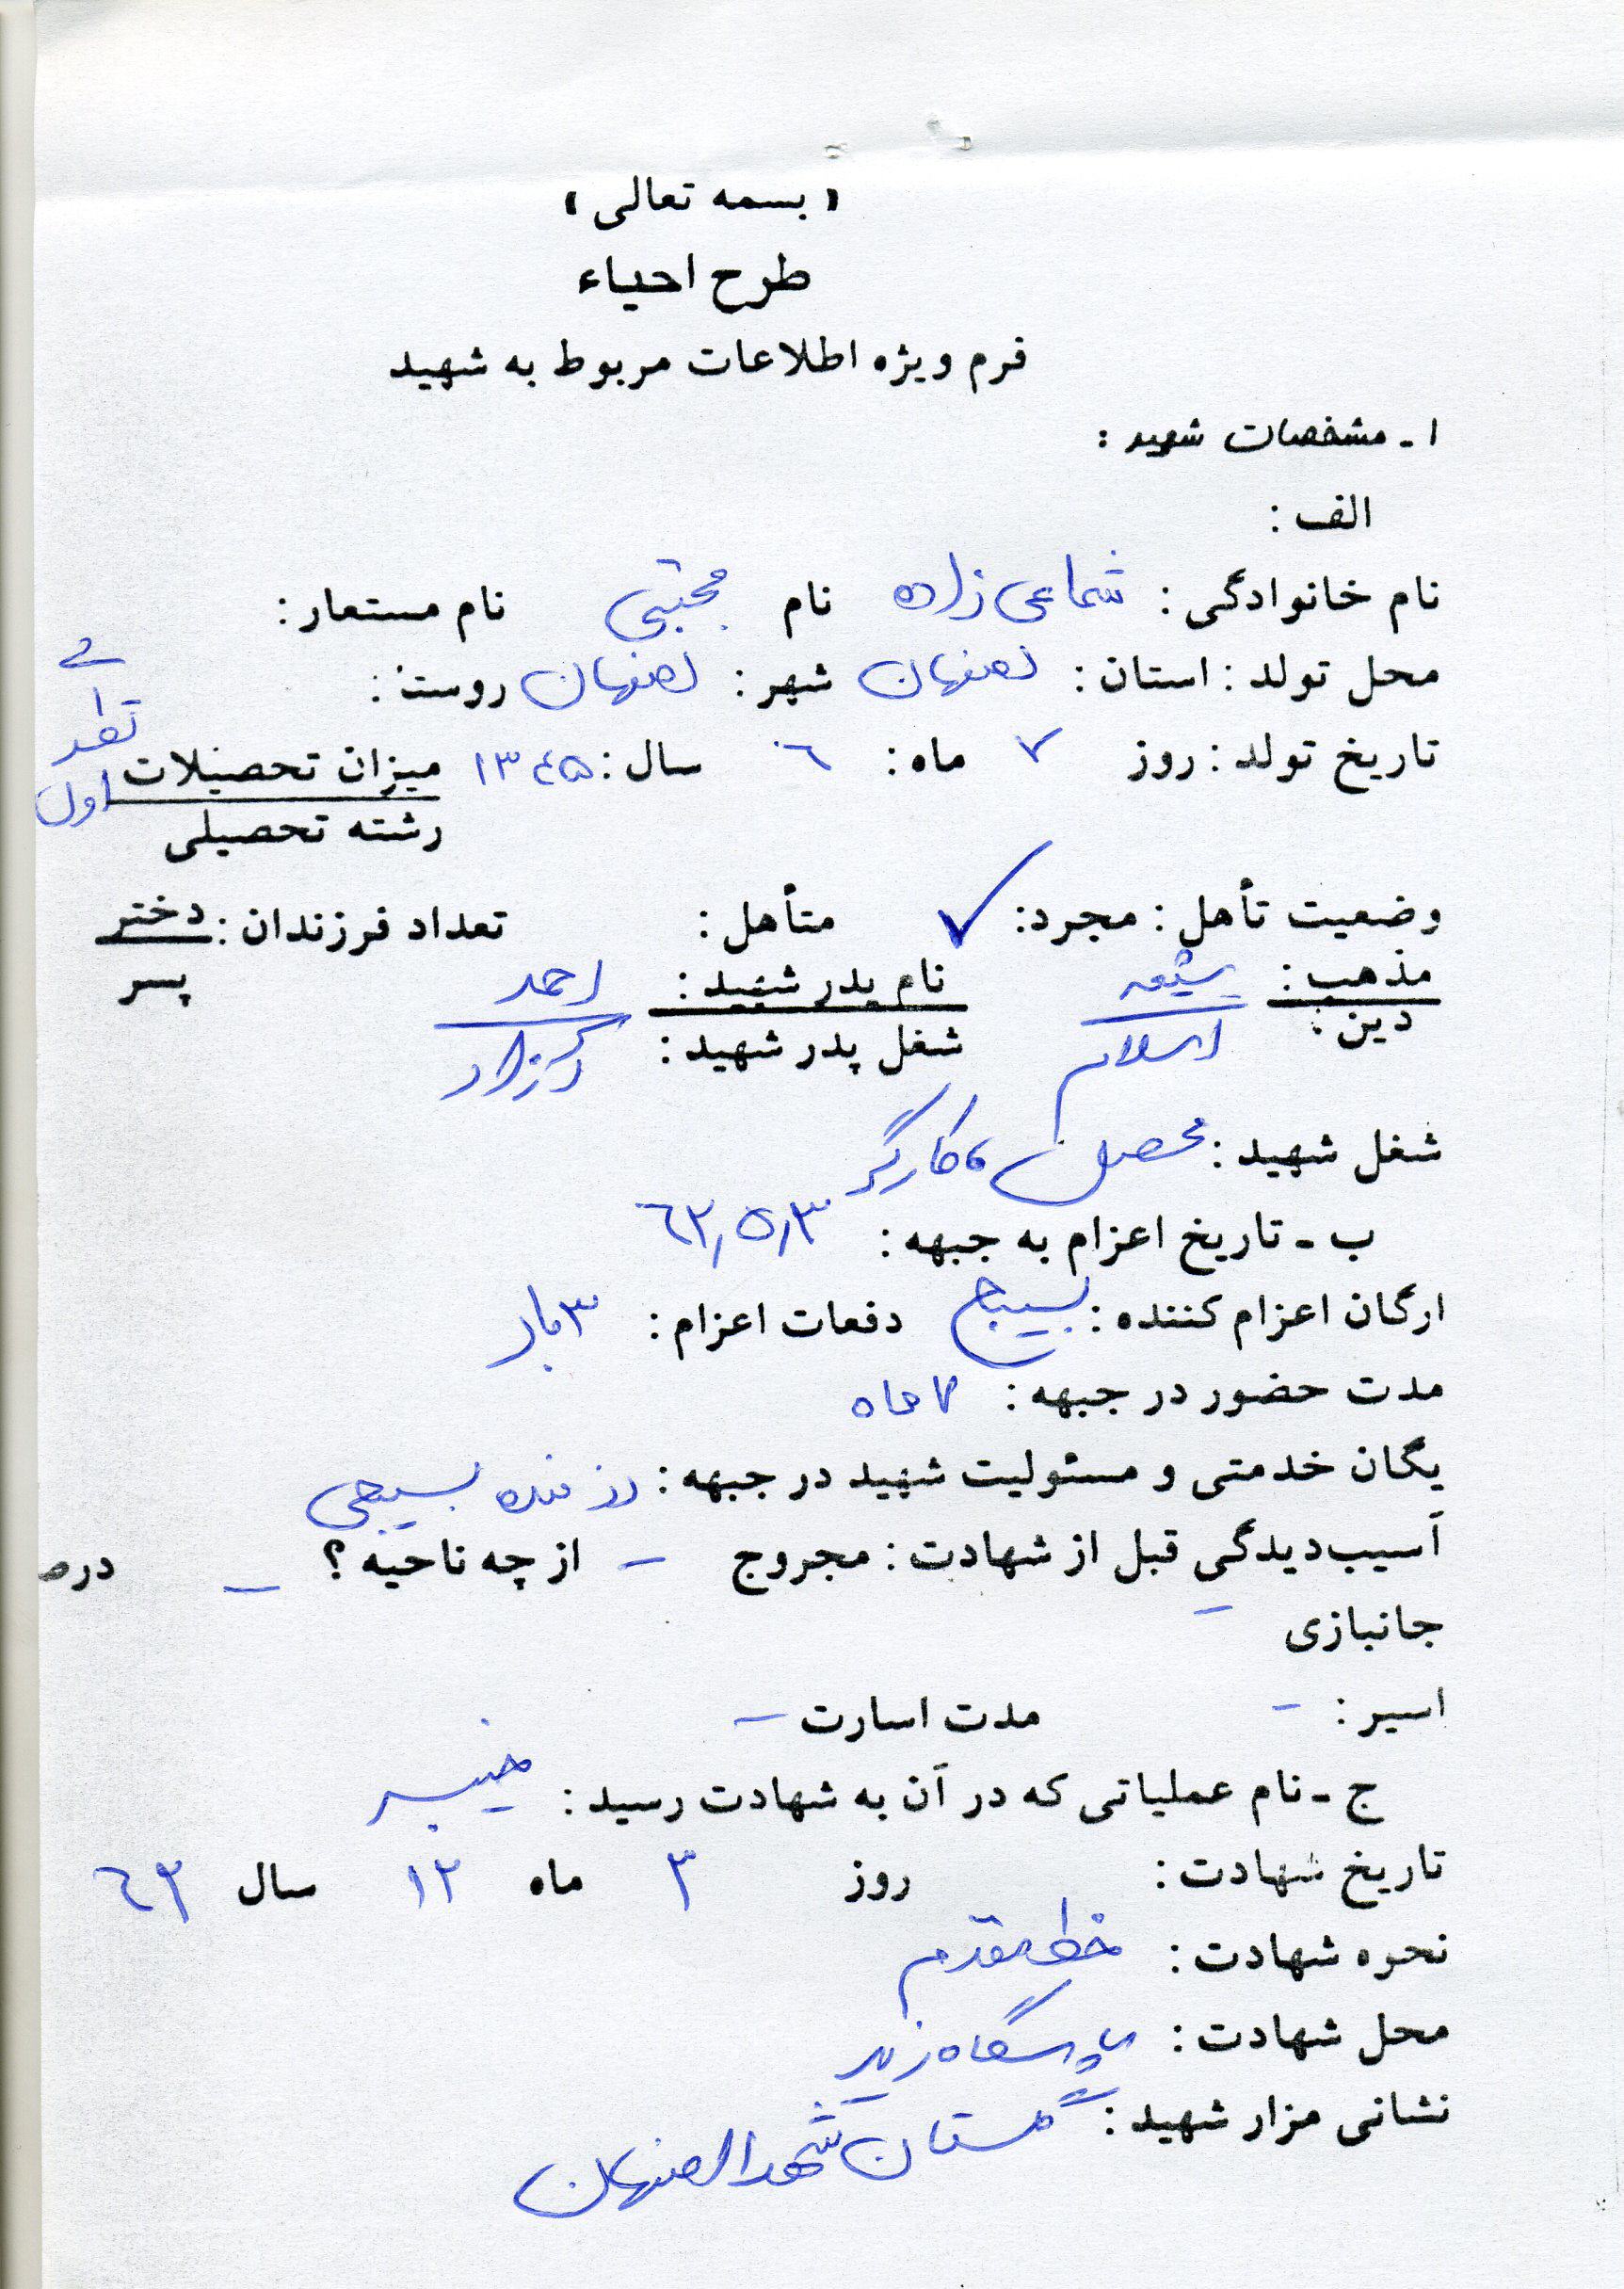 « بسمه تعالی »
طرح احیاء
فرم ویژه اطلاعات مربوط به شهید
۱ - مشخصات شهید :
الف :
نام خانوادگی : شماعی زاده نام مجتبی نام مستعار :
محل تولد : استان : اصفهان شهر : اصفهان روستا :
تاریخ تولد : روز ۷ ماه : ٦ سال : ۱۳٤۵ میزان تحصیلات اول
رشته تحصیلی
وضعیت تأهل : مجرد : ✓ متأهل : تعداد فرزندان : دختر
پسر
مذهب : شیعه نام پدر شهید : احمد
دین : اسلام شغل پدر شهید :
شغل شهید : محصل ، کارگر
ب - تاریخ اعزام به جبهه : ٦۳٫۵٫۳
ارگان اعزام کننده : بسیج دفعات اعزام : ۳ بار
مدت حضور در جبهه : ۷ ماه
یگان خدمتی و مسئولیت شهید در جبهه : رزمنده بسیجی
آسیب‌دیدگی قبل از شهادت : مجروح – از چه ناحیه ؟ – درص
جانبازی –
اسیر : – مدت اسارت –
ج - نام عملیاتی که در آن به شهادت رسید : خیبر
تاریخ شهادت : روز ۳ ماه ۱۲ سال ٦۳
نحوه شهادت : خط مقدم
محل شهادت : پاسگاه زید
نشانی مزار شهید : گلستان شهدا اصفهان